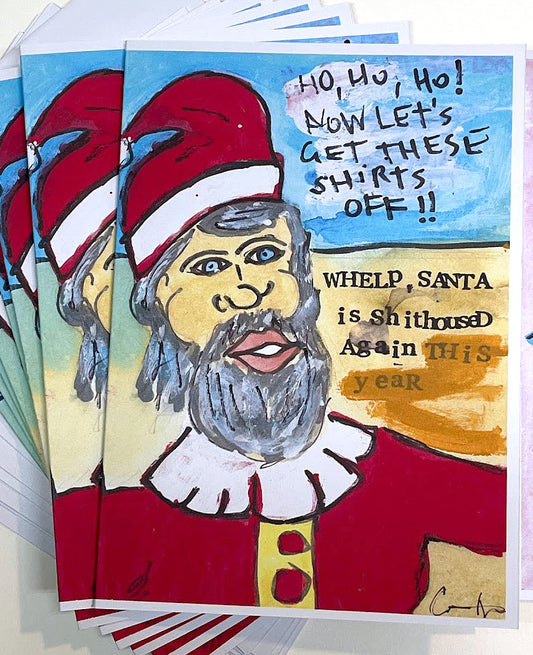 HO, HO, HO!
NOW LET'S
GET THESE
SHIRTS
OFF!!
WHELP, SANTA
is shithouseD
Again THis
yeaR